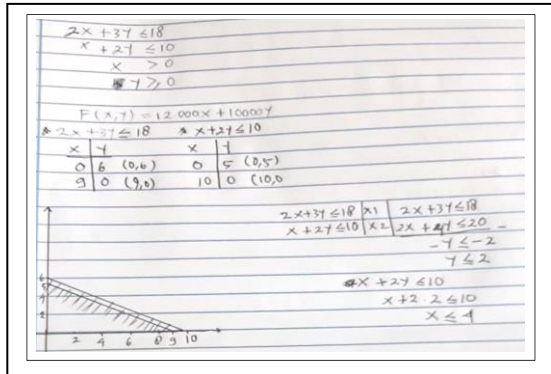 2x + 3y ≤ 18
x + 2y ≤ 10
x > 0
y ≥ 0
F(x,y) = 12.000x + 10000y
* 2x + 3y ≤ 18 * x + 2y ≤ 10
x | y x | y
0 | 6 (0,6) 0 | 5 (0,5)
9 | 0 (9,0) 10 | 0 (10,0
2x + 3y ≤ 18 | x1 | 2x + 3y ≤ 18
x + 2y ≤ 10 | x2 | 2x + 4y ≤ 20 -
-y ≤ -2
y ≤ 2
x + 2y ≤ 10
x + 2 . 2 ≤ 10
x ≤ 4
6
5
4
2
2 4 6 8 9 10